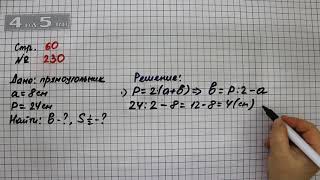 4 на 5
Стр. 60
№ 230
Дано: прямоугольник
a = 8см
P = 24см
Найти: B - ?, S ½ - ?
Решение:
1) P = 2·(a+b) ⇒ b = P:2-a
24:2-8 = 12-8 = 4(см)